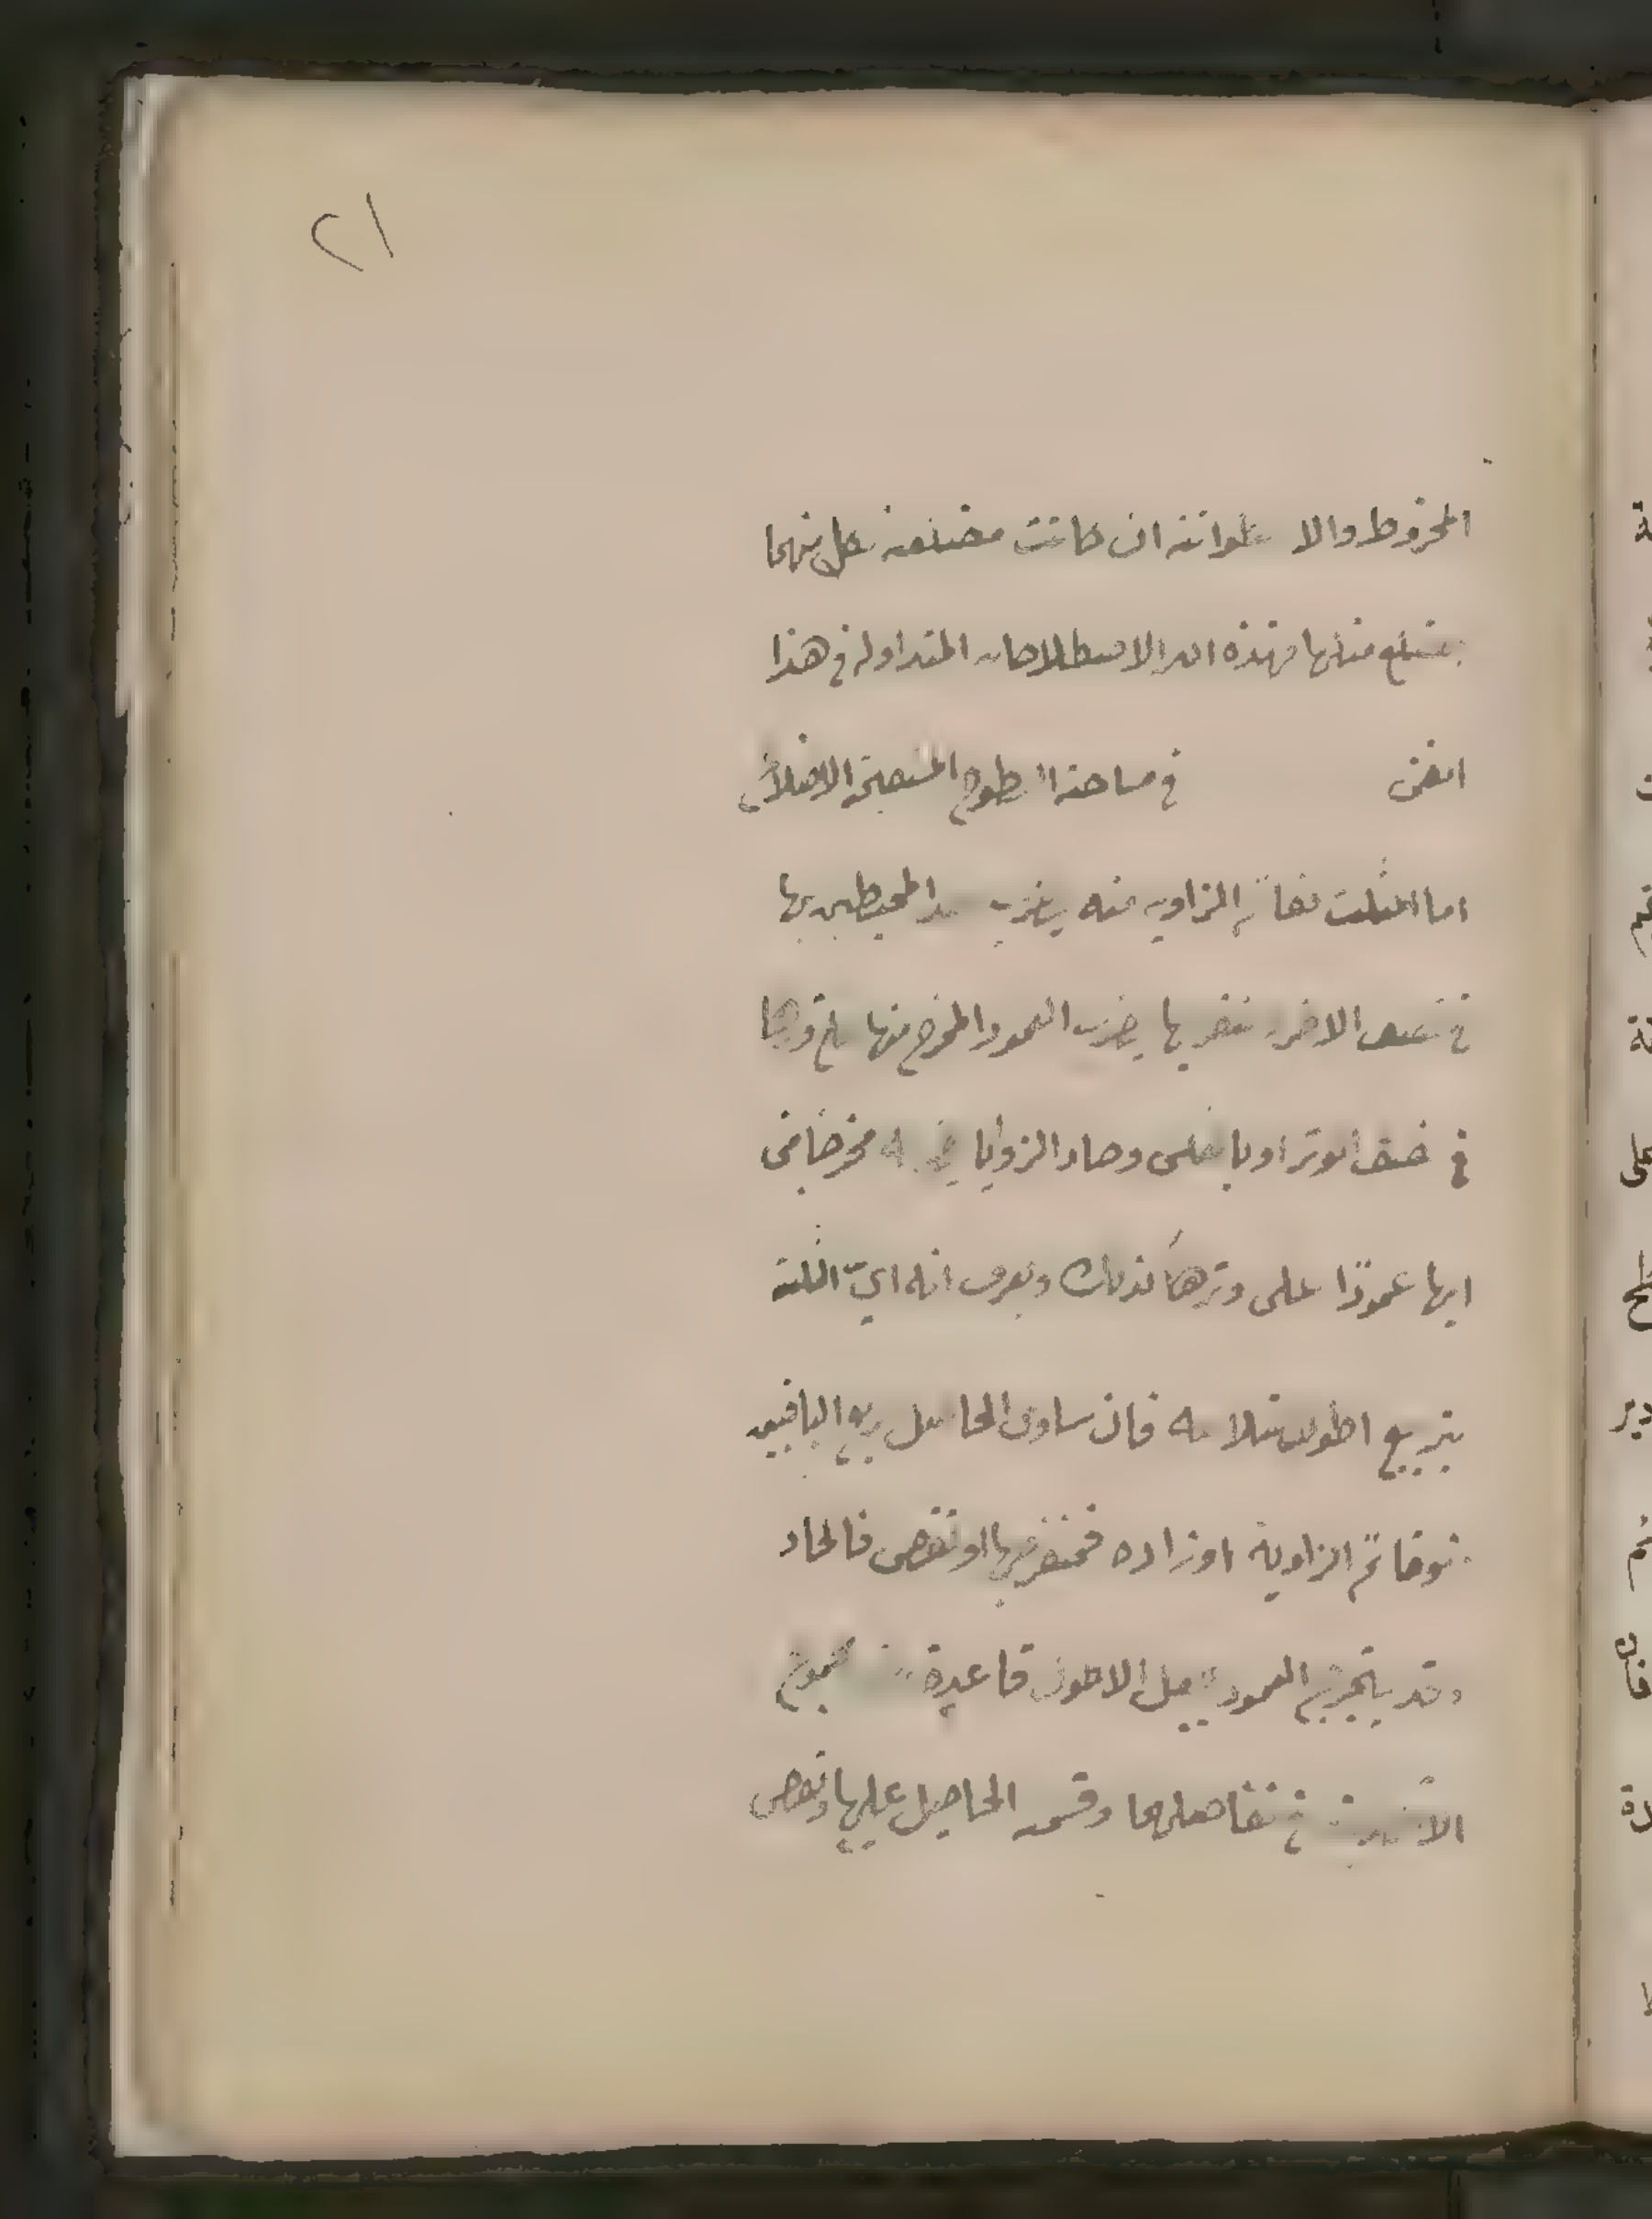 ٢١
المخروط والاسطوانة ان كانت مضلعة فكل منهما
مضلع مثلها فهذه الاصطلاحات المتداولة في هذا
الفن في مساحة السطوح المستقيمة الاضلاع
اما المثلث فقائم الزاوية منه يضرب احد المحيطين بها
في نصف الاخر ومنفرجها يضرب العمود المخرج منها على وترها
في نصف الوتر او بالعكس وحاد الزوايا مخرجا من
ايها عمودا على وترها كذلك ويعرف انه اي الثلثة
بتربيع اطول اضلاعه فان ساوى الحاصل مربعي الباقيين
فهو قائم الزاوية او زاد فمنفرجها او نقص فالحاد
وقد يستخرج العمود بجعل الاطول قاعدة مجموع
الاقصرين في تفاضلهما وقسمة الحاصل عليها ونقص